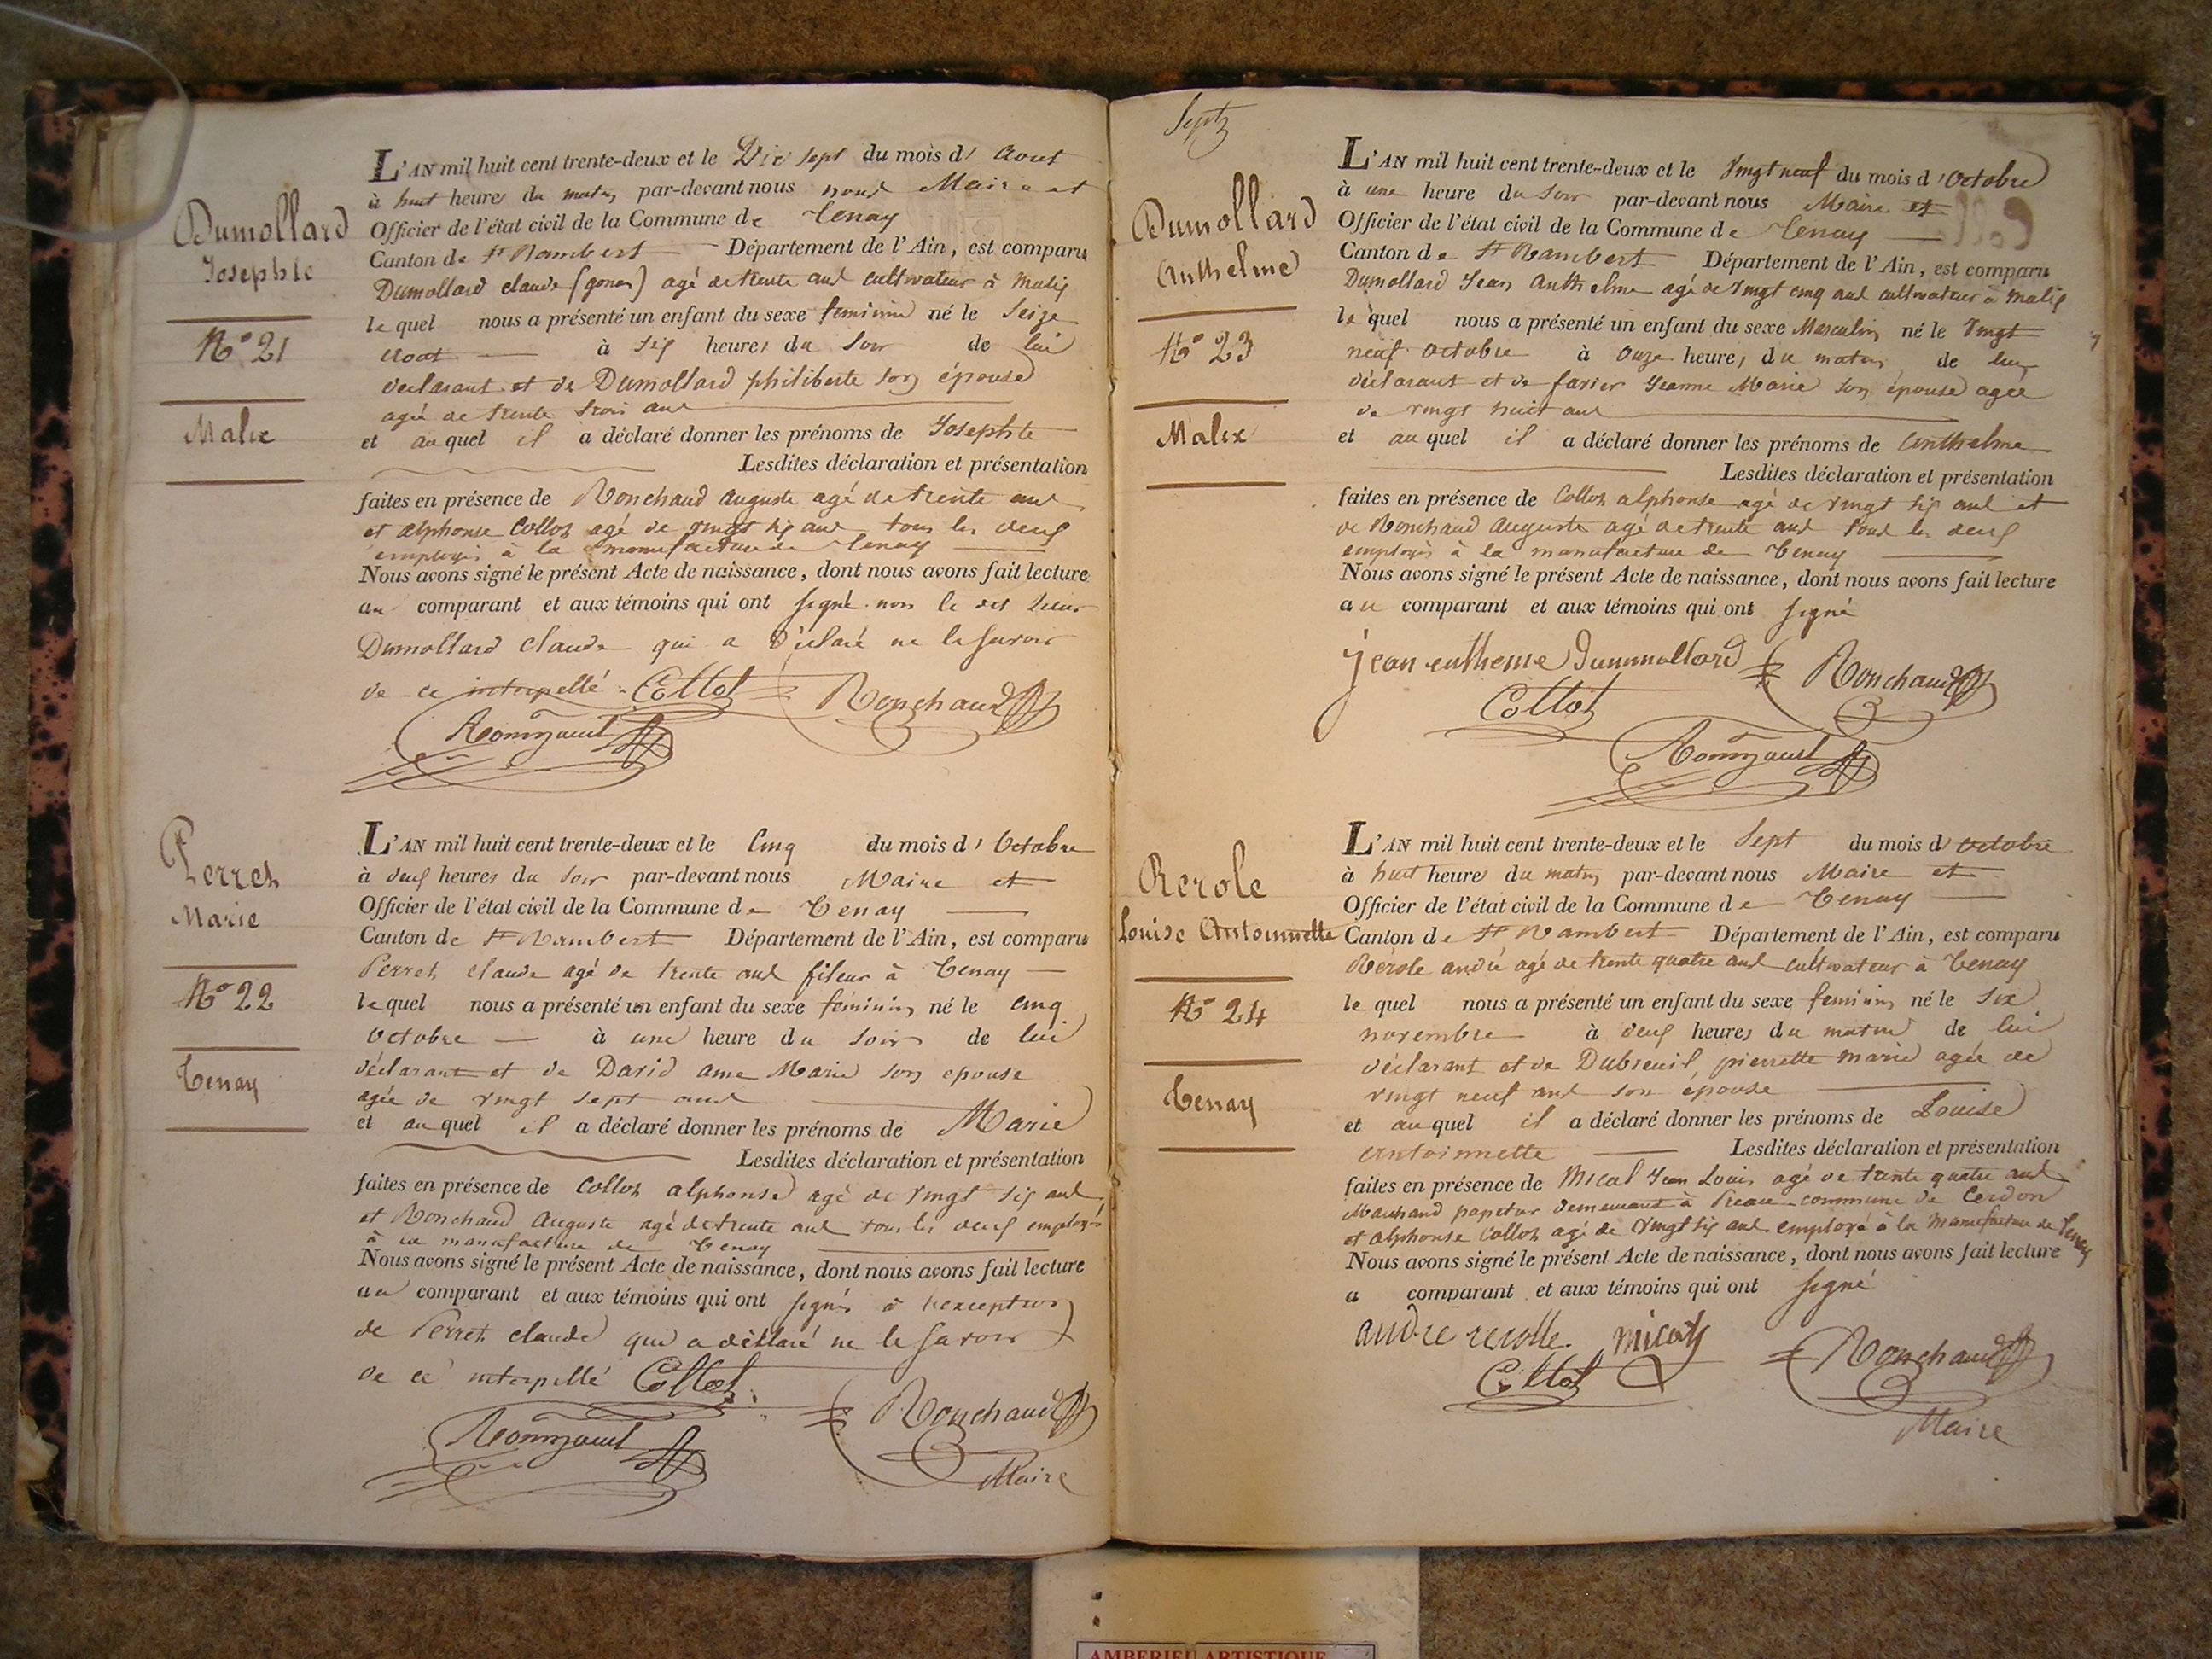 Dumollard
Josephte
N° 21
Malix
L'AN mil huit cent trente-deux et le Dix sept du mois d' aout
à huit heures du matin par-devant nous nous Maire et
Officier de l'état civil de la Commune de Tenay
Canton de St Rambert Département de l'Ain, est comparu
Dumollard claude (gonon) agé de trente ans cultivateur à Malix
lequel nous a présenté un enfant du sexe feminin né le Seize
aout à six heures du soir de lui
déclarant et de Dumollard philiberte son épouse
agée de trente trois ans
et auquel il a déclaré donner les prénoms de Josephte
Lesdites déclaration et présentation
faites en présence de Ronchaud auguste agé de trente ans
et alphonse Collot agé de vingt six ans tous les deux
employés à la manufacture de Tenay
Nous avons signé le présent Acte de naissance, dont nous avons fait lecture
au comparant et aux témoins qui ont signé non le dit sieur
Dumollard claude qui a déclaré ne le savoir
de ce interpellé Collot Ronchaud
Perret
Marie
N° 22
Tenay
L'AN mil huit cent trente-deux et le Cinq du mois d' Octobre
à deux heures du soir par-devant nous Maire et
Officier de l'état civil de la Commune de Tenay
Canton de St Rambert Département de l'Ain, est comparu
Perret claude agé de trente ans fileur à Tenay
lequel nous a présenté un enfant du sexe féminin né le cinq
Octobre à une heure du soir de lui
déclarant et de David ane Marie son epouse
agée de vingt sept ans
et auquel il a déclaré donner les prénoms de Marie
Lesdites déclaration et présentation
faites en présence de Collot alphonse agé de vingt six ans
et Ronchaud Auguste agé de trente ans tous les deux employés
à la manufacture de Tenay
Nous avons signé le présent Acte de naissance, dont nous avons fait lecture
au comparant et aux témoins qui ont signés à l'exception
de Perret claude qui a déclaré ne le savoir
de ce interpellé Collot
Ronchaud
Maire
Sept
Dumollard
Anthelme
N° 23
Malix
L'AN mil huit cent trente-deux et le Vingt neuf du mois d' Octobre
à une heure du soir par-devant nous Maire et
Officier de l'état civil de la Commune de Tenay
Canton de St Rambert Département de l'Ain, est comparu
Dumollard Jean Anthelme agé de vingt cinq ans cultivateur à Malix
lequel nous a présenté un enfant du sexe Masculin né le Vingt
neuf octobre à onze heures du matin de lui
déclarant et de favier Jeanne Marie son épouse agée
de vingt huit ans
et auquel il a déclaré donner les prénoms de Anthelme
Lesdites déclaration et présentation
faites en présence de Collot alphonse agé de vingt six ans et
de Ronchaud Auguste agé de trente ans tous les deux
employés à la manufacture de Tenay
Nous avons signé le présent Acte de naissance, dont nous avons fait lecture
au comparant et aux témoins qui ont signé
jean entheme dunmollard Ronchaud
Collot
Rerole
Louise Antoinnette
N° 24
Tenay
L'AN mil huit cent trente-deux et le Sept du mois d' octobre
à huit heures du matin par-devant nous Maire et
Officier de l'état civil de la Commune de Tenay
Canton de St Rambert Département de l'Ain, est comparu
Rérole andré agé de trente quatre ans cultivateur à Tenay
lequel nous a présenté un enfant du sexe feminin né le six
novembre à deux heures du matin de lui
déclarant et de Dubreuil pierrette marie agée de
vingt neuf ans son épouse
et auquel il a déclaré donner les prénoms de Louise
Antoinnette Lesdites déclaration et présentation
faites en présence de Micol Jean Louis agé de trente quatre ans
Marchand papetier demeurant à Preau commune de Cerdon
et alphonse Collot agé de vingt six ans employé à la Manufacture de Tenay
Nous avons signé le présent Acte de naissance, dont nous avons fait lecture
a comparant et aux témoins qui ont signé
andre rerolle. Ronchaud
Collot
Maire
AMBERIEU ARTISTIQUE